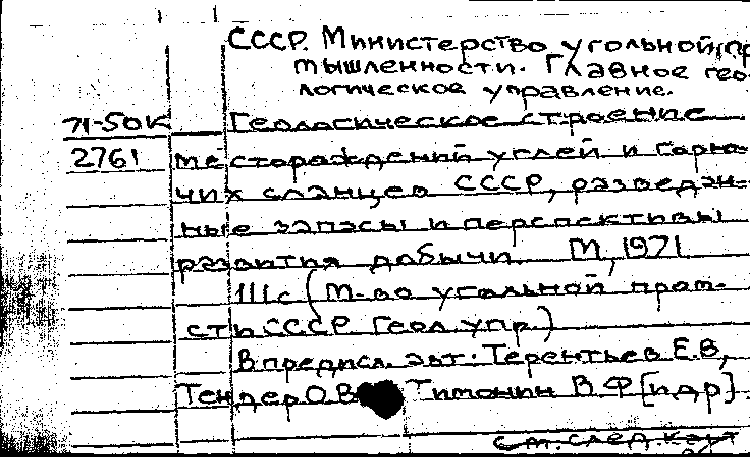 СССР. Министерство угольной пр
мышленности. Главное гео-
логическое управление.
71-50К Геологическое строение
2761 месторождений углей и горю-
чих сланцев СССР, разведан-
ные запасы и перспективы
развития добычи. М, 1971
111с (М-во угольной пром-
сти СССР Геол. упр.)
В предисл. авт: Терентьев Е.В,
Тендер О.В Тимонин В.Ф [и др]
см. след. карт